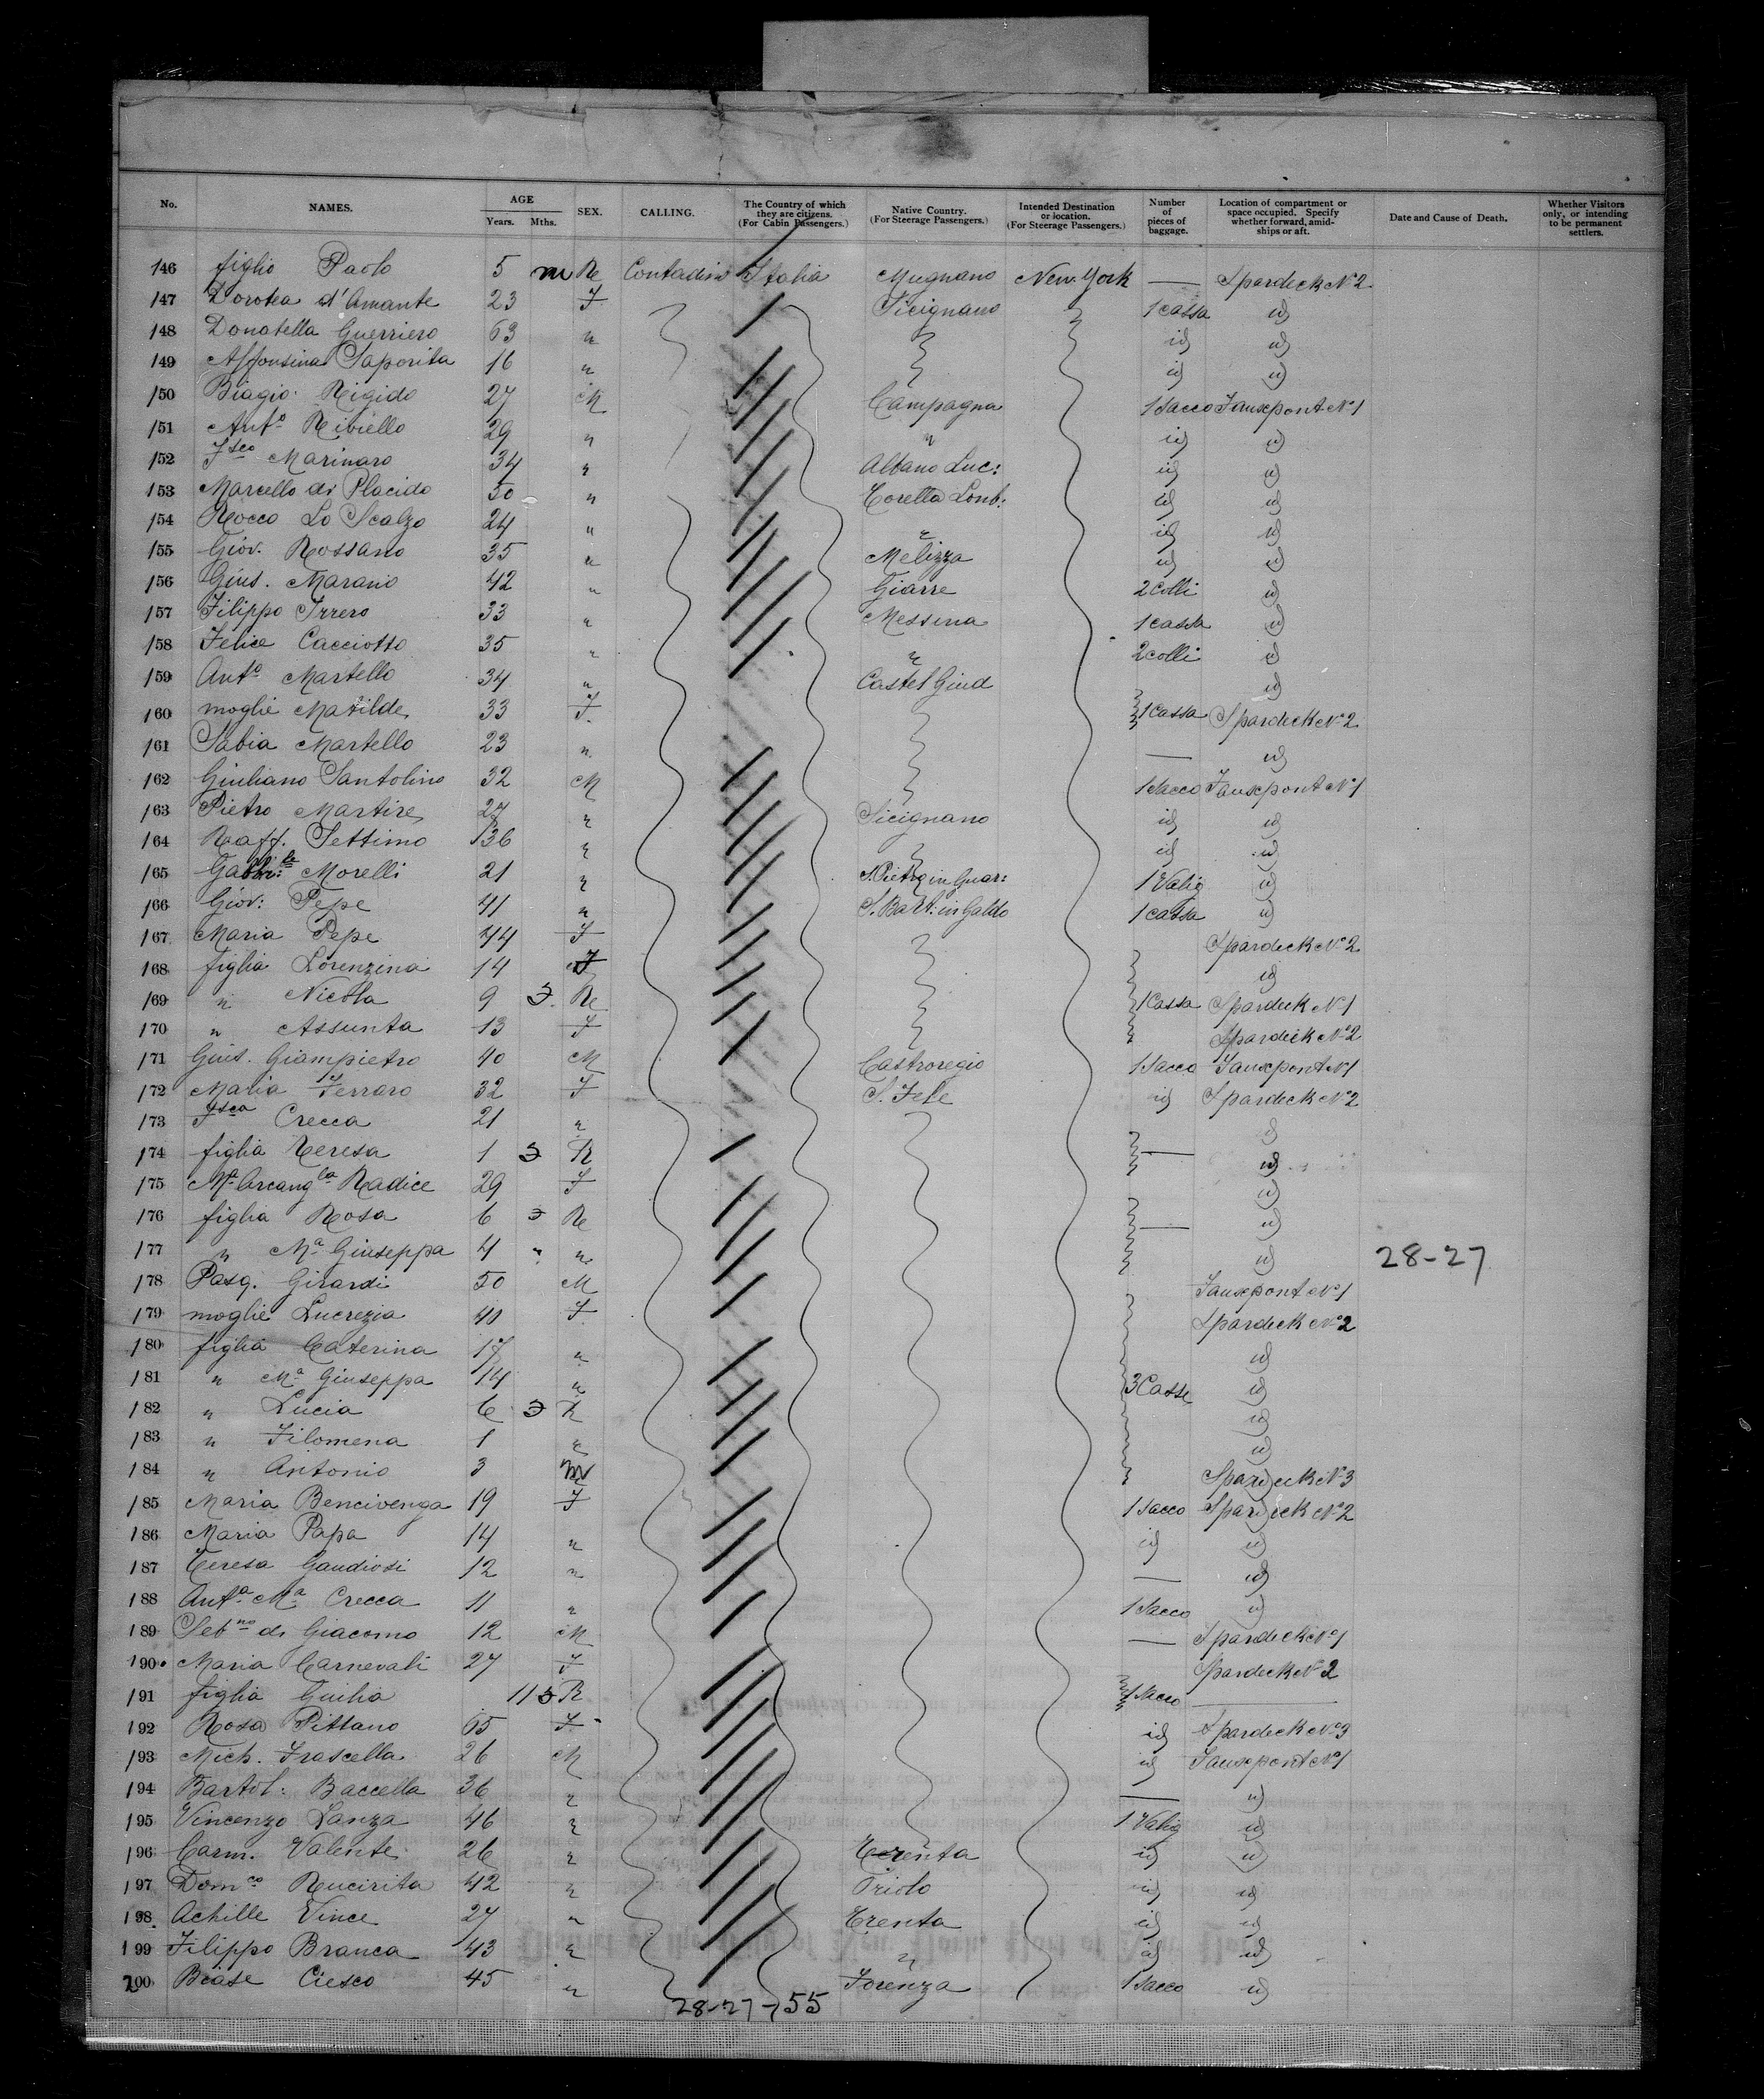 No. NAMES. AGE Years. Mths. SEX. CALLING. The Country of which they are citizens. (For Cabin Passengers.) Native Country. (For Steerage Passengers.) Intended Destination or location. (For Steerage Passengers.) Number of pieces of baggage. Location of compartment or space occupied. Specify whether forward, amidships or aft. Date and Cause of Death. Whether Visitors only, or intending to be permanent settlers.
146 figlio Paolo 5 m Re Contadini Italia Mugnano New York — Spardeck No 2
147 Dorotea d'Amante 23 F Sicignano 1 cassa id
148 Donatella Guerriero 63 " id id
149 Alfonsina Saporita 16 " id id
150 Biagio Rigido 27 M Campagna 1 Sacco Fauxpont No 1
151 Anto Riviello 29 " " id id
152 Fsco Marinaro 34 " Albano Luc: id id
153 Marcello di Placido 50 " id id
154 Rocco Lo Scalzo 24 " " id id
155 Giov. Rossano 35 " Melizza id id
156 Gius. Marano 42 " Giarre 2 colli id
157 Filippo Irrero 33 " Messina 1 cassa id
158 Felice Cacciotto 35 " " 2 colli id
159 Anto Martello 34 " Castel Giud id
160 moglie Matilde 33 F. 1 Cassa Spardeck No 2
161 Sabia Martello 23 " — id
162 Giuliano Santolino 32 M 1 Sacco Fauxpont No 1
163 Pietro Martire 27 " Sicignano id id
164 Raff. Settimo 36 " id id
165 Morelli 21 " S. Pietro in Guar: 1 Valig id
166 Giov: Pepe 41 " S. Bart: in Galdo 1 cassa id
167 Maria Pepe 44 F Spardeck No 2
168 figlia Lorenzina 14 F id
169 " Nicola 9 Re 1 Cassa Spardeck No 1
170 " Assunta 13 F Spardeck No 2
171 Gius. Giampietro 40 M Castroregio 1 Sacco Fauxpont No 1
172 Maria Ferraro 32 F S. Fele id Spardeck No 2
173 Fsca Crecca 21 " id
174 figlia Teresa 1 R — id
175 Ma Arcangla Radice 29 F id
176 figlia Rosa 6 Re — id
177 " Ma Giuseppa 4 " " id 28-27
178 Pasq. Girardi 50 M Fauxpont No 1
179 moglie Lucrezia 40 F. Spardeck No 2
180 figlia Caterina 17 " id
181 " Ma Giuseppa 14 " 3 Casse id
182 " Lucia 6 R id
183 " Filomena 1 " id
184 " Antonio 3 m Spardeck No 3
185 Maria Bencivenga 19 F 1 Sacco Spardeck No 2
186 Maria Papa 14 " id id
187 Teresa Gaudiosi 12 " — id
188 Anta Ma Crecca 11 " 1 Sacco id
189 Sebno di Giacomo 12 M — Spardeck No 1
190 Maria Carnevali 27 F Spardeck No 2
191 figlia Giulia 11 R 1 Sacco —
192 Rosa Pittano 65 F. id Spardeck No 3
193 Mich. Frascella 26 M id Fauxpont No 1
194 Bartol: Baccella 36 " — id
195 Vincenzo Lanza 46 " 1 Valig id
196 Carm. Valente 26 " id id
197 Domco Rucirita 42 " Triolo id id
198 Achille Vince 27 " Trenta id id
199 Filippo Branca 43 " " id id
200 Biase Ciesco 45 " Forenza 1 Sacco id
28-27-55